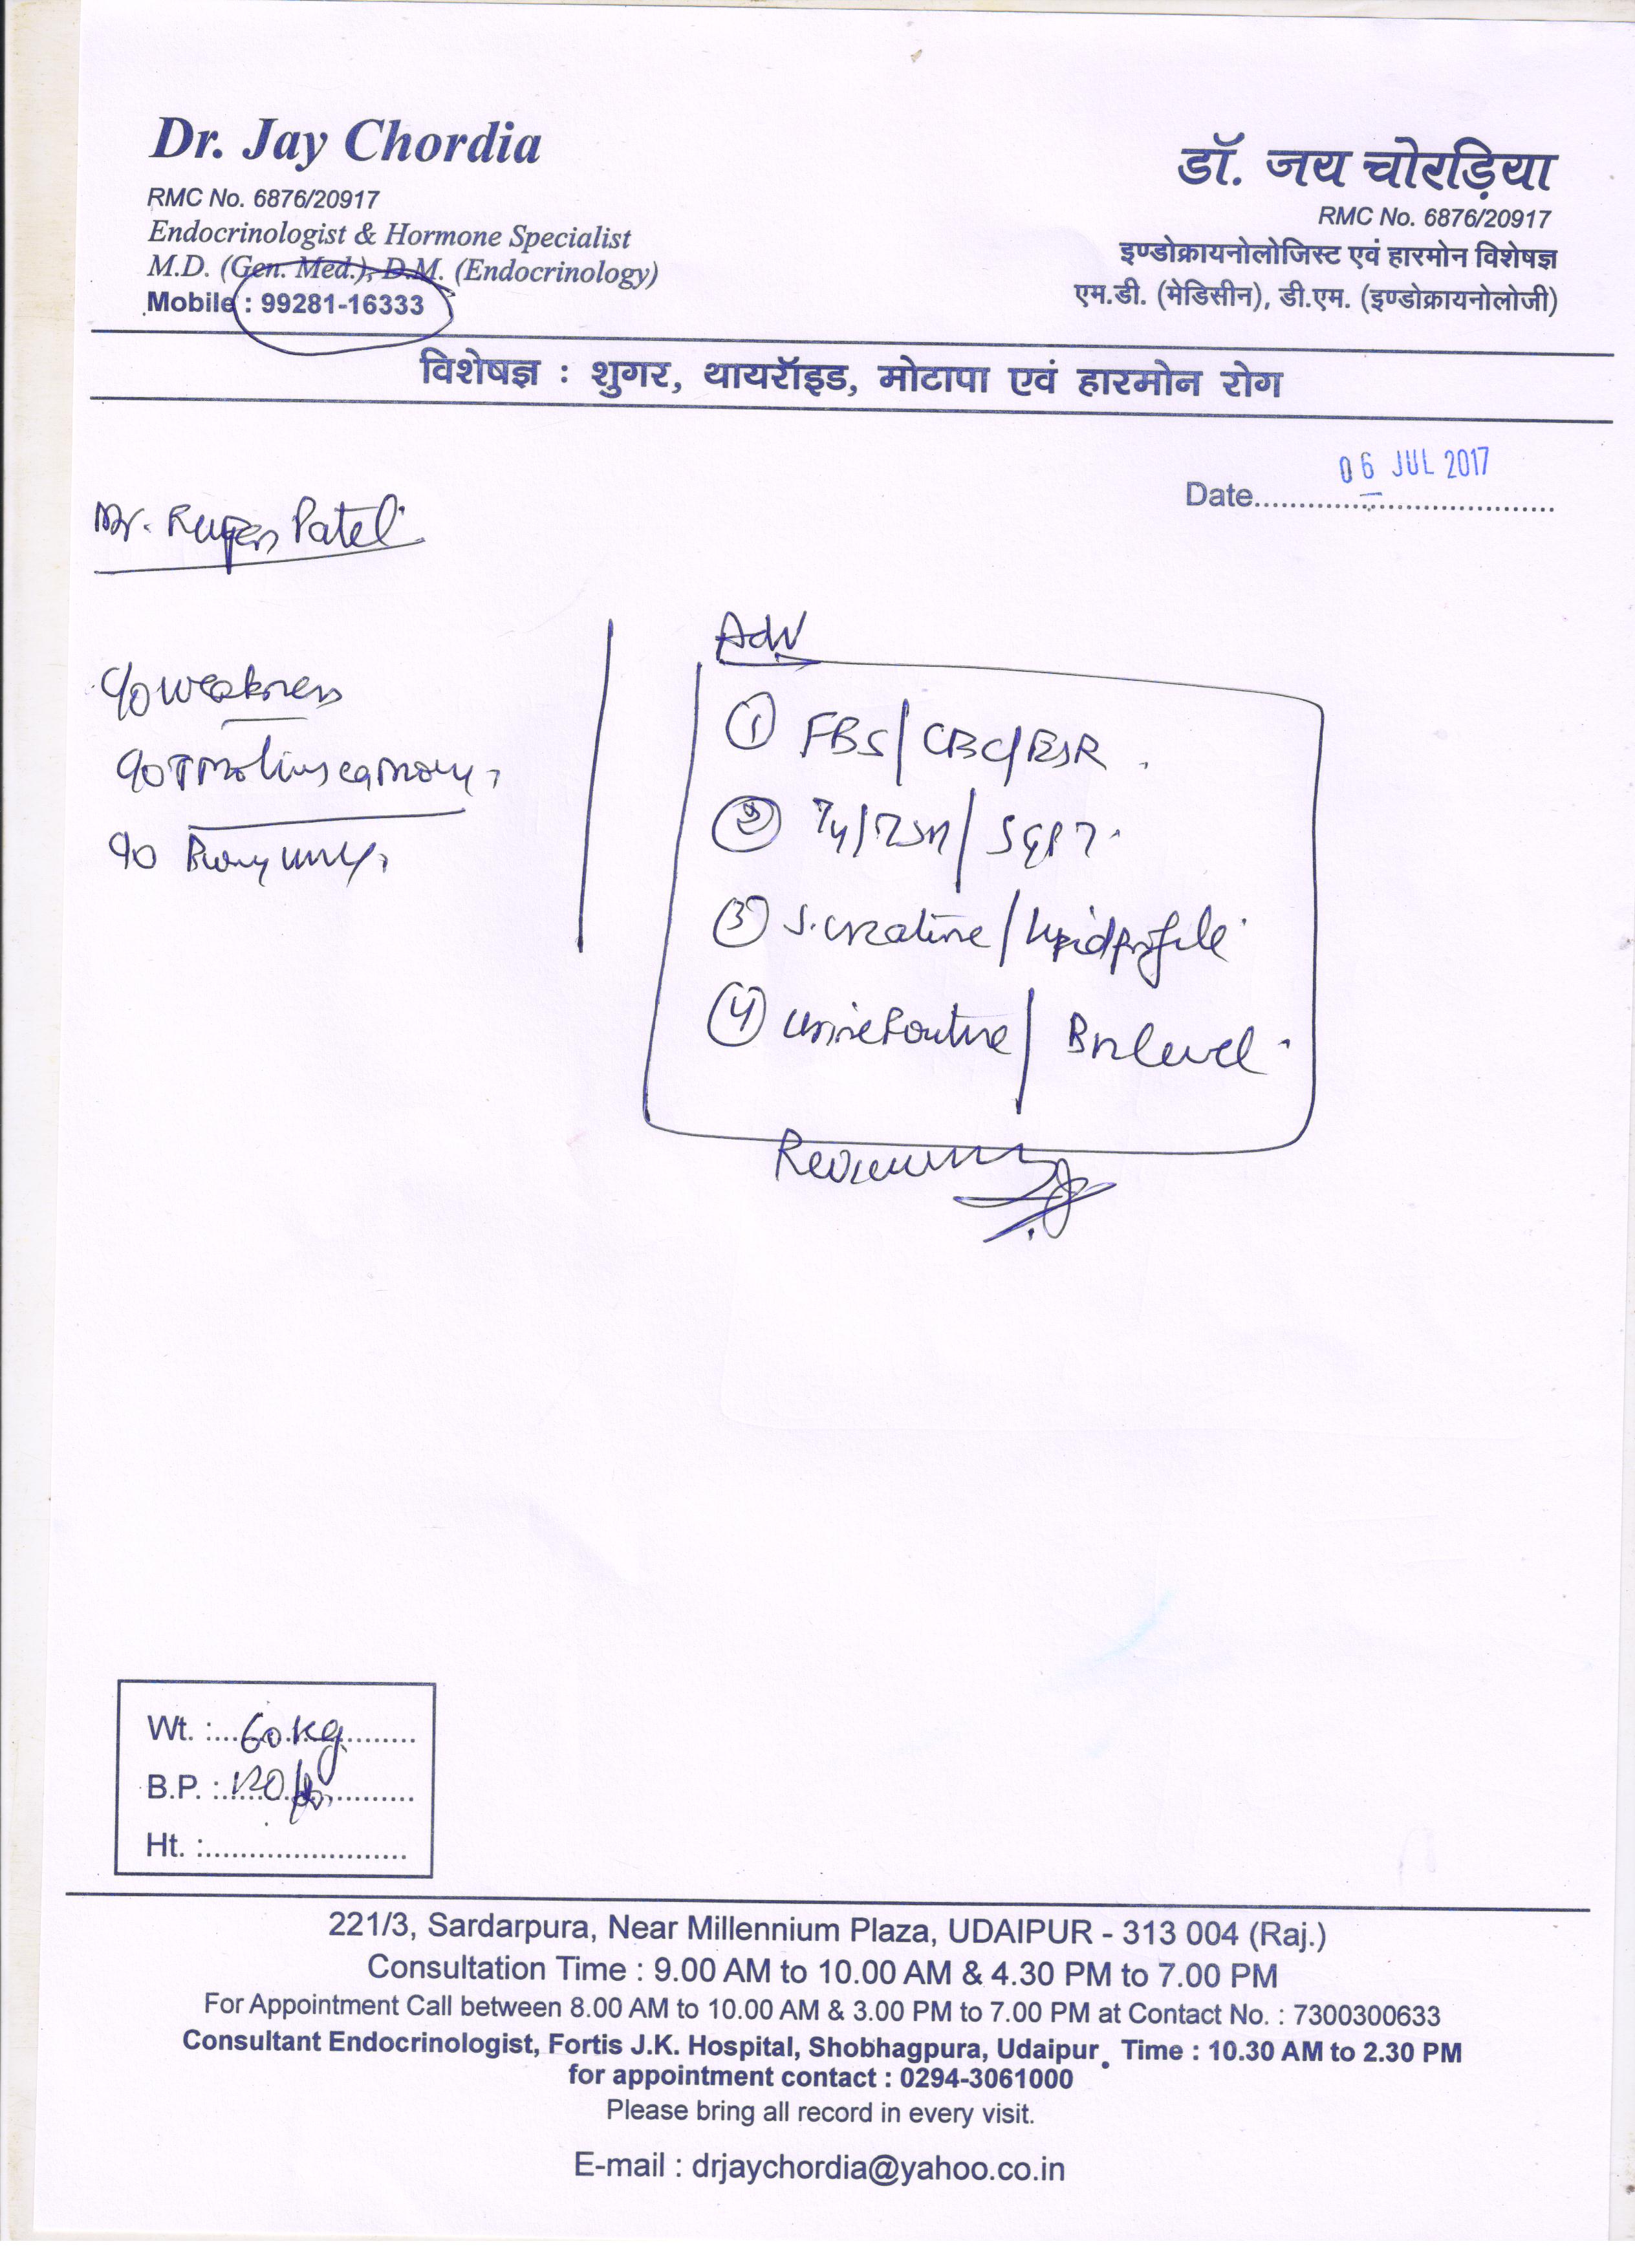 Dr. Jay Chordia
RMC No. 6876/20917
Endocrinologist & Hormone Specialist
M.D. (Gen. Med.), D.M. (Endocrinology)
Mobile : 99281-16333
डॉ. जय चोरड़िया
RMC No. 6876/20917
इण्डोक्रायनोलोजिस्ट एवं हारमोन विशेषज्ञ
एम.डी. (मेडिसीन), डी.एम. (इण्डोक्रायनोलोजी)
विशेषज्ञ : शुगर, थायरॉइड, मोटापा एवं हारमोन रोग
Date 06 JUL 2017
Mr. Patel
c/o weakness
c/o
c/o
Adv
① FBS/CBC/ESR
② T4/TSH/SGPT
③ S. creatine/lipid profile
④ urine routine/B12 level
Wt. : 60 kg
B.P. : 120/
Ht. :
221/3, Sardarpura, Near Millennium Plaza, UDAIPUR - 313 004 (Raj.)
Consultation Time : 9.00 AM to 10.00 AM & 4.30 PM to 7.00 PM
For Appointment Call between 8.00 AM to 10.00 AM & 3.00 PM to 7.00 PM at Contact No. : 7300300633
Consultant Endocrinologist, Fortis J.K. Hospital, Shobhagpura, Udaipur. Time : 10.30 AM to 2.30 PM
for appointment contact : 0294-3061000
Please bring all record in every visit.
E-mail : drjaychordia@yahoo.co.in